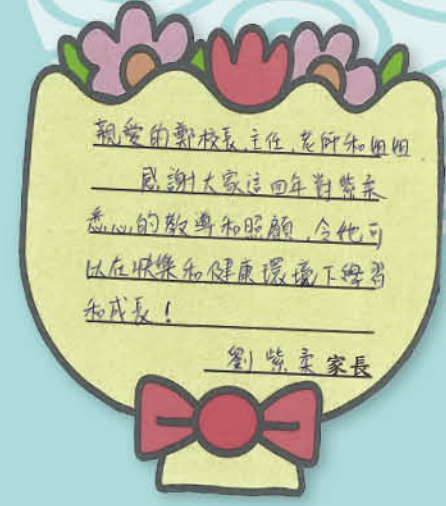 親愛的鄭校長,主任,老師和姐姐
感謝大家這四年對紫柔
悉心的教導和照顧,令他可
以在快樂和健康環境下學習
和成長!
劉紫柔家長